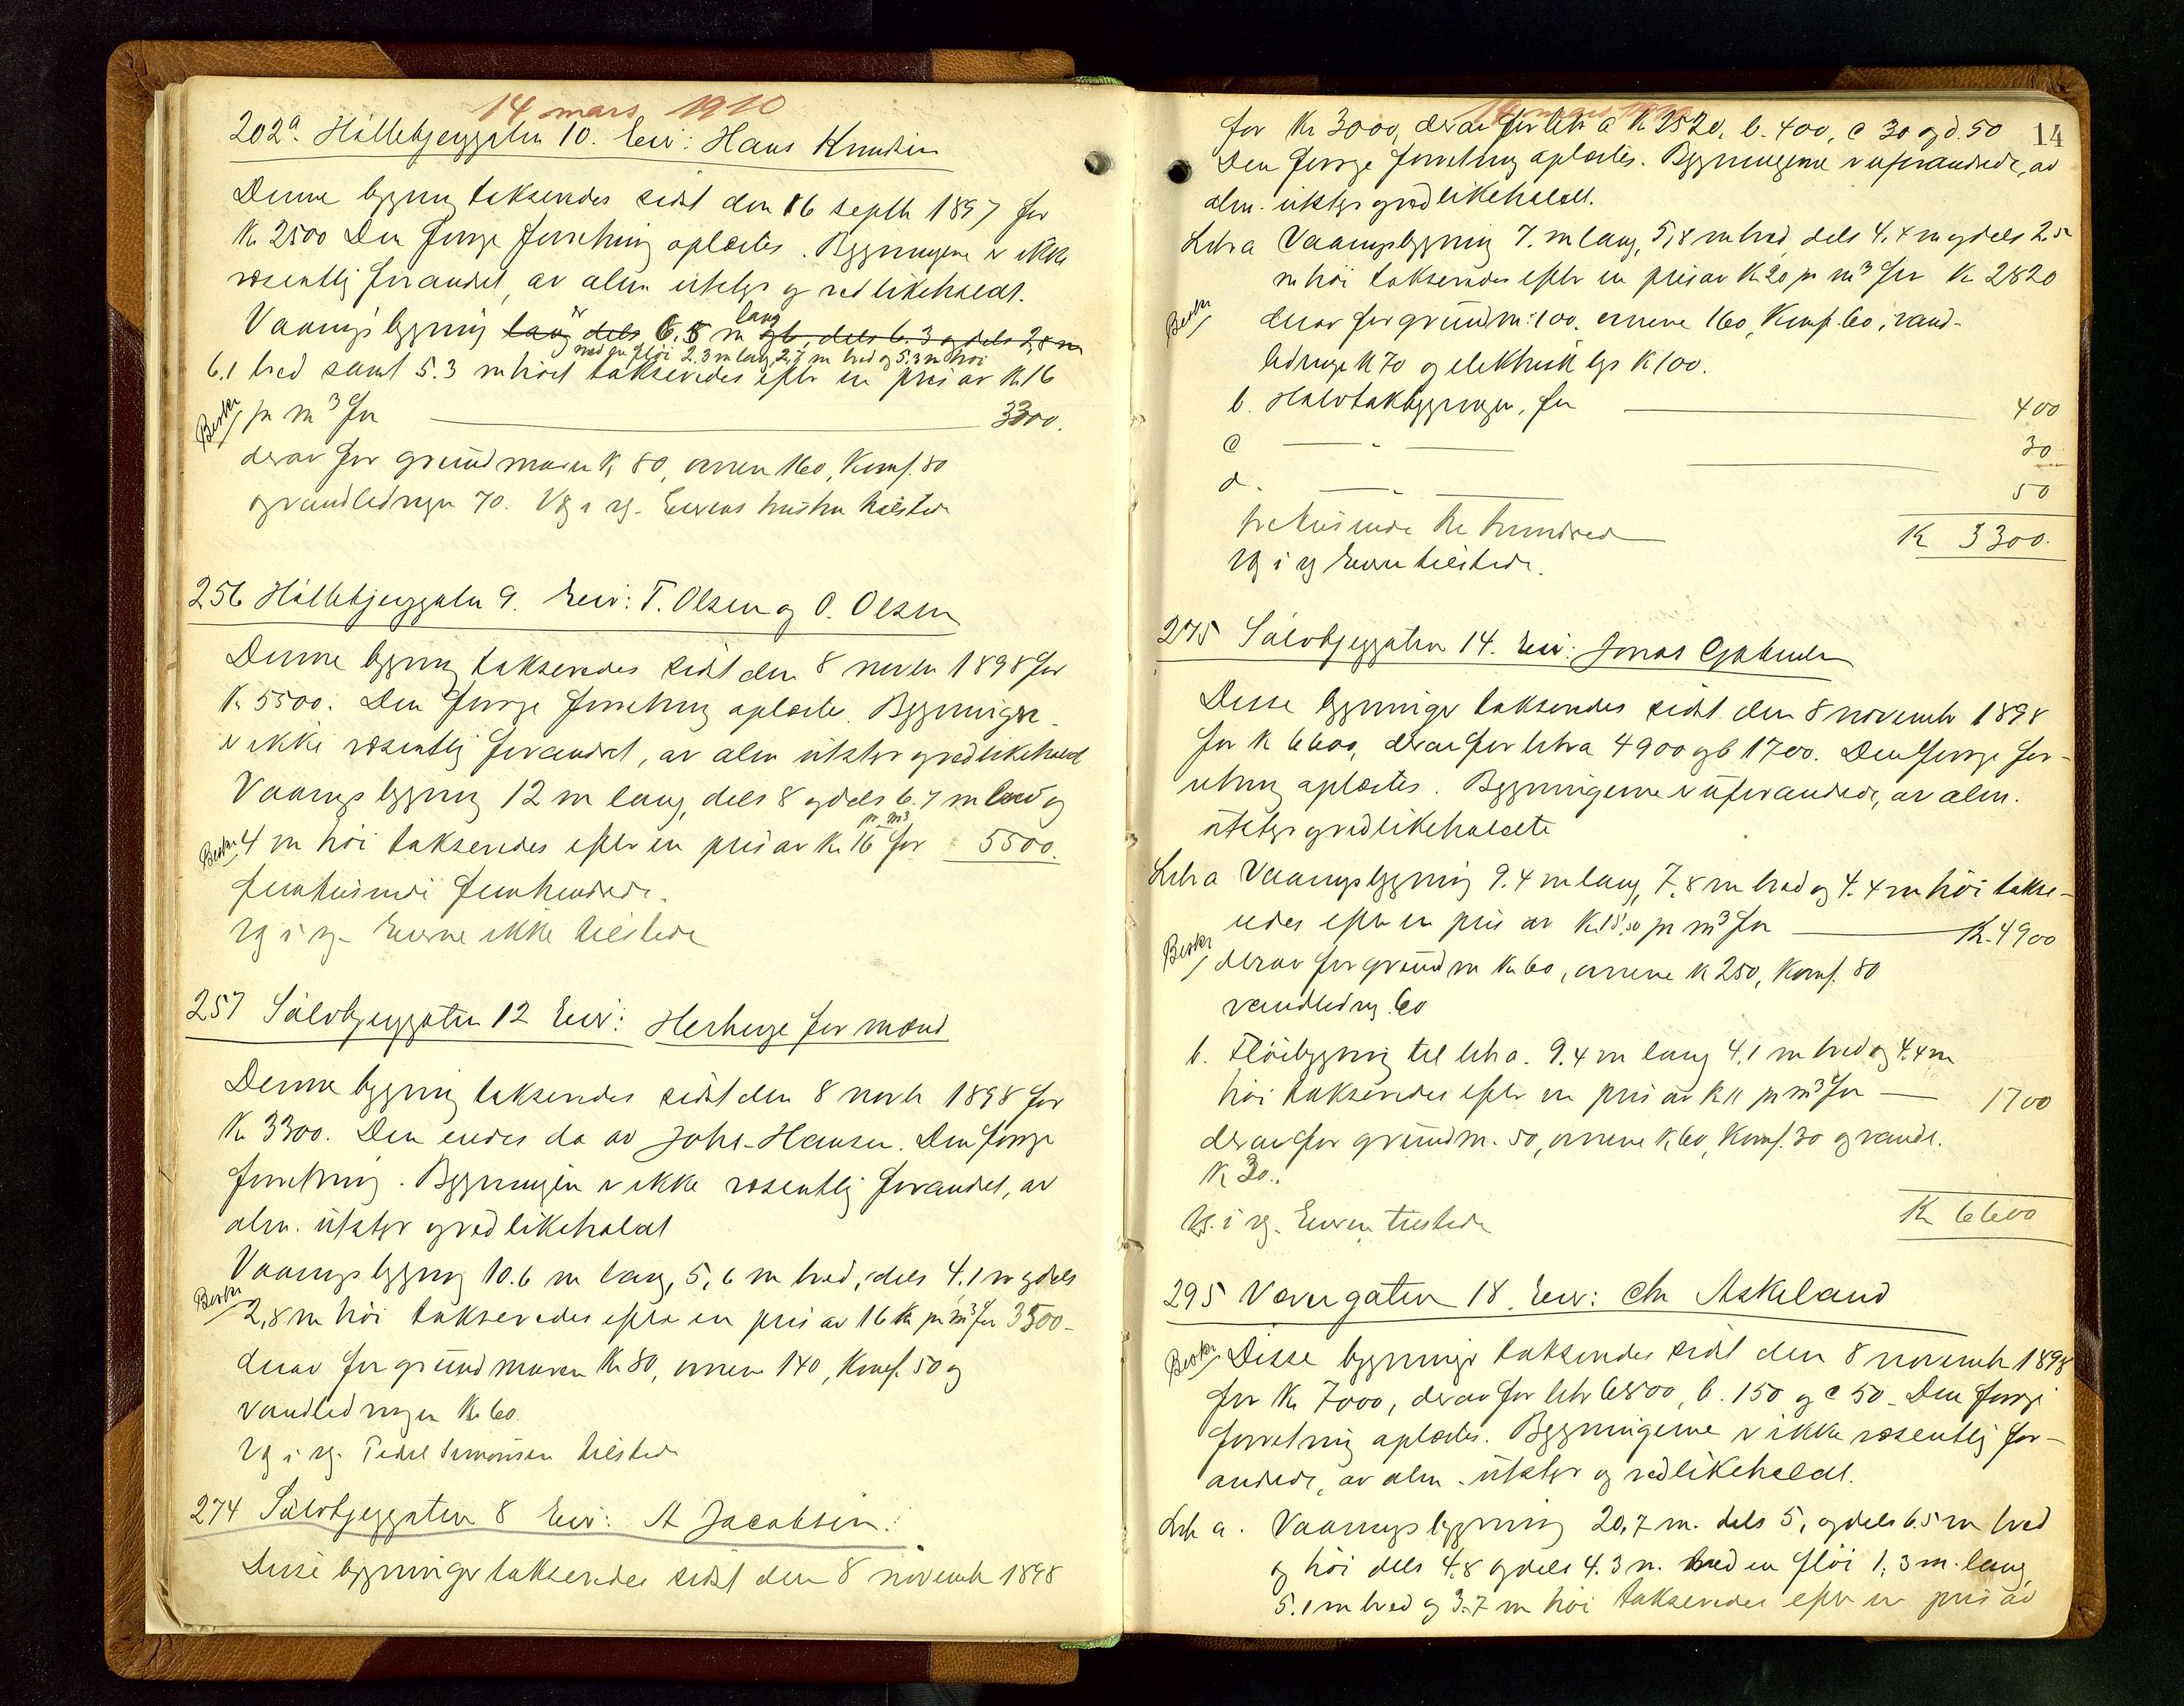 14 mars 1910
202a. Hillebjerggaten 10. Eier: Hans Knudsen
Denne bygning takseredes sidst den 16 septbr 1897 for
Kr 2500 Den forrige forretning oplæstes. Bygningen er ikke
væsentlig forandret, av alm utstyr og vedlikeholdt.
Vaaningsbygning lang dels 6,5 m lang og b, dels 6.3 og dels 2,8 m
med en fløi 2.3 m lang 2,7 m bred og 5.3 m høi
6.1 bred samt 5.3 m høit takseredes efter en pris av Kr 16
Beskr pr m3 for 3300.
derav for grundmuren Kr 80, ovnen 160, Komf. 80
og vandledningen 70. Vg i rg. Eierens hustru tilstede
256 Hillebjerggaten 9. Eier: T. Olsen og O. Olsen
Denne bygning takseredes sidst den 8 novbr 1898 for
Kr 5500. Den forrige forretning oplæstes. Bygningen
er ikke væsentlig forandret, av alm utstyr og vedlikehold
Vaaningsbygning 12 m lang, dels 8 og dels 6.7 m bred og
Beskr 4 m høi takseredes efter en pris av Kr 16 pr m3 for 5500.
femtusinde femhundrede.
Vg i rg. Eierne ikke tilstede
257 Sølvbjerggaten 12 Eier: Herberge for mænd
Denne bygning takseredes sidst den 8 novbr 1898 for
Kr 3300. Den eiedes da av Johs. Hansen. Den forrige
forretning. Bygningen er ikke væsentlig forandret, av
alm. utstyr og vedlikeholdt
Vaaningsbygning 10.6 m lang, 5,6 m bred, dels 4.1 m og dels
Beskr 2,8 m høi takseredes efter en pris av 16 Kr pr m3 for 3300-
derav for grundmuren Kr 80, ovnen 140, Komf. 50 og
vandledningen Kr 60.
Vg i rg. Pedel Simonsen tilstede
274 Sølvbjerggaten 8 Eier: A Jacobsen.
Disse bygninger takseredes sidst den 8 novembr 1898
14 mars 1910
14
for Kr 3000, derav for litr a Kr 2520, b. 400, c 30 og d. 50
Den forrige forretning oplæstes. Bygningerne er uforandrede, av
alm. utstyr og vedlikeholdt.
Litra Vaaningsbygning 7. m lang, 5,8 m bred, dels 4,4 m og dels 2.5
m høi takseredes efter en pris av Kr 20 pr m3 for Kr 2820
Beskr derav for grundm: 100, ovnene 160, Komf. 60, vand-
ledninge Kr 70 og elektrisk lys Kr 100.
b. Halvtakbygningen, for 400
c - " - 30
d. - " - 50
tretusinde tre hundred Kr 3300.
Vg i rg Eieren tilstede.
275 Sølvbjerggaten 14. Eier: Jonas Gabrielsen
Disse bygninger takseredes sidst den 8 novembr 1898
for Kr 6600, derav for litra 4900 og b 1700. Den forrige for-
retning oplæstes. Bygningerne er uforandrede, av alm.
utstyr og vedlikeholdte
Litr a Vaaningsbygning 9.4 m lang, 7,8 m bred og 4.4 m høi takse-
redes efter en pris av Kr 15,50 pr m3 for Kr. 4900
Beskr derav for grundm Kr 60, ovnene Kr 250, Komf. 80
vandledng. 60
b. Fløibygning til litr a. 9.4 m lang 4,1 m bred og 4,4 m
høi takseredes efter en pris av Kr 11 pr m3 for 1700
derav for grundm. 50, ovnene Kr 60, Komf. 30 og vandl.
Kr 30.
Vg. i rg. Eieren tilstede Kr 6600
295 Vævergaten 18. Eier: Chr Askeland
Beskr Disse bygninger takseredes sidst den 8 novembr 1898
for Kr 7000, derav for litr 6800, b. 150 og c 50. Den forrige
forretning oplæstes. Bygningerne er ikke væsentlig for-
andrede, av alm. utstyr og vedlikeholdt.
Litr a. Vaaningsbygning 20,7 m. dels 5, og dels 6.5 m bred
og høi dels 4,8 og dels 4.3 m. med en fløi 1,3 m. lang,
5.1 m bred og 3.7 m høi takseredes efter en pris av